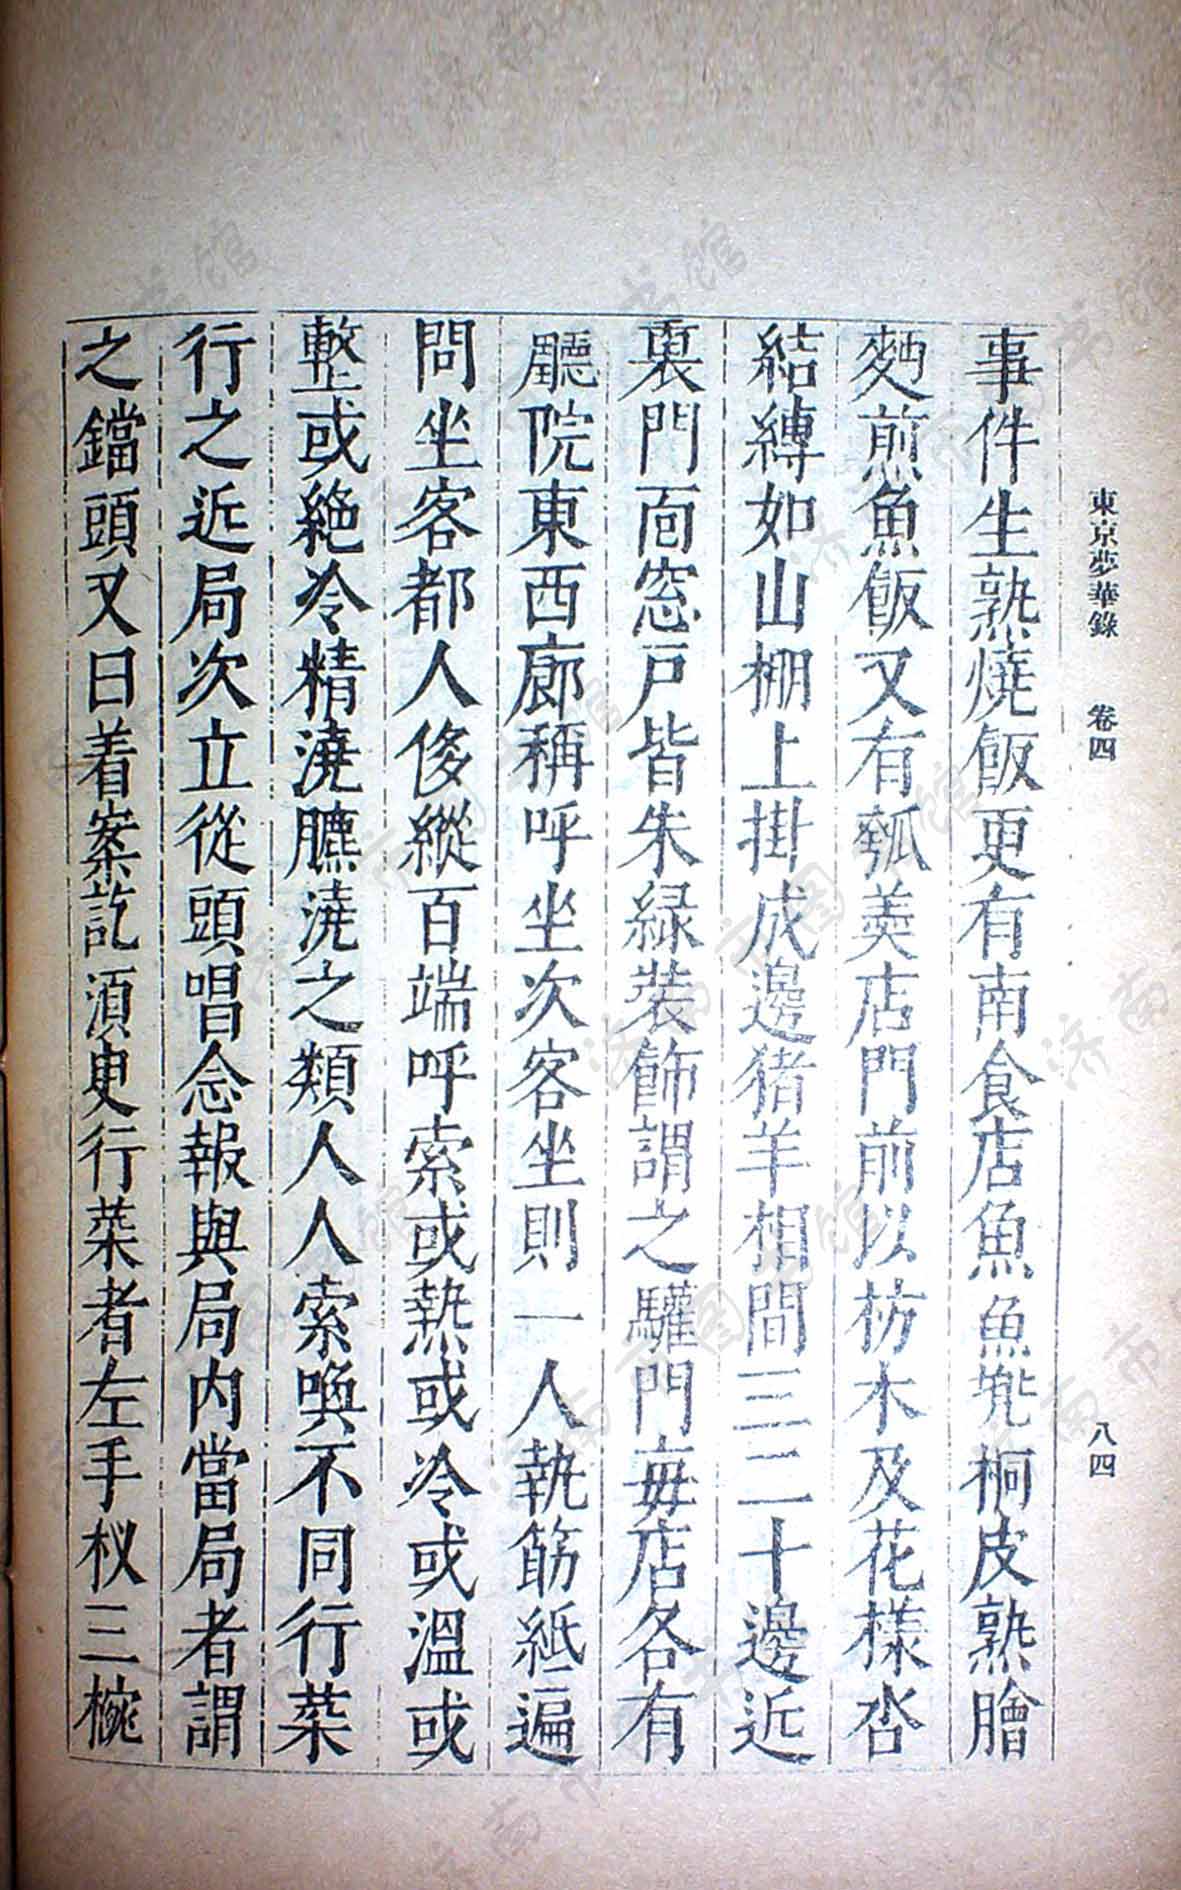 東京夢華錄 卷四 八四
事件生熟燒飯更有南食店魚魚兠桐皮熟膾
麪煎魚飯又有瓠羮店門前以枋木及花樣沓
結縛如山棚上掛成邊猪羊相間三二十邊近
裏門面窓戶皆朱緑裝飾謂之驩門每店各有
廳院東西廊稱呼坐次客坐則一人執筯紙遍
問坐客都人侈縱百端呼索或熱或冷或溫或
整或絶冷精澆臕澆之類人人索喚不同行菜
行之近局次立從頭唱念報與局内當局者謂
之鐺頭又曰着案訖須臾行菜者左手杈三椀
济南市图书馆